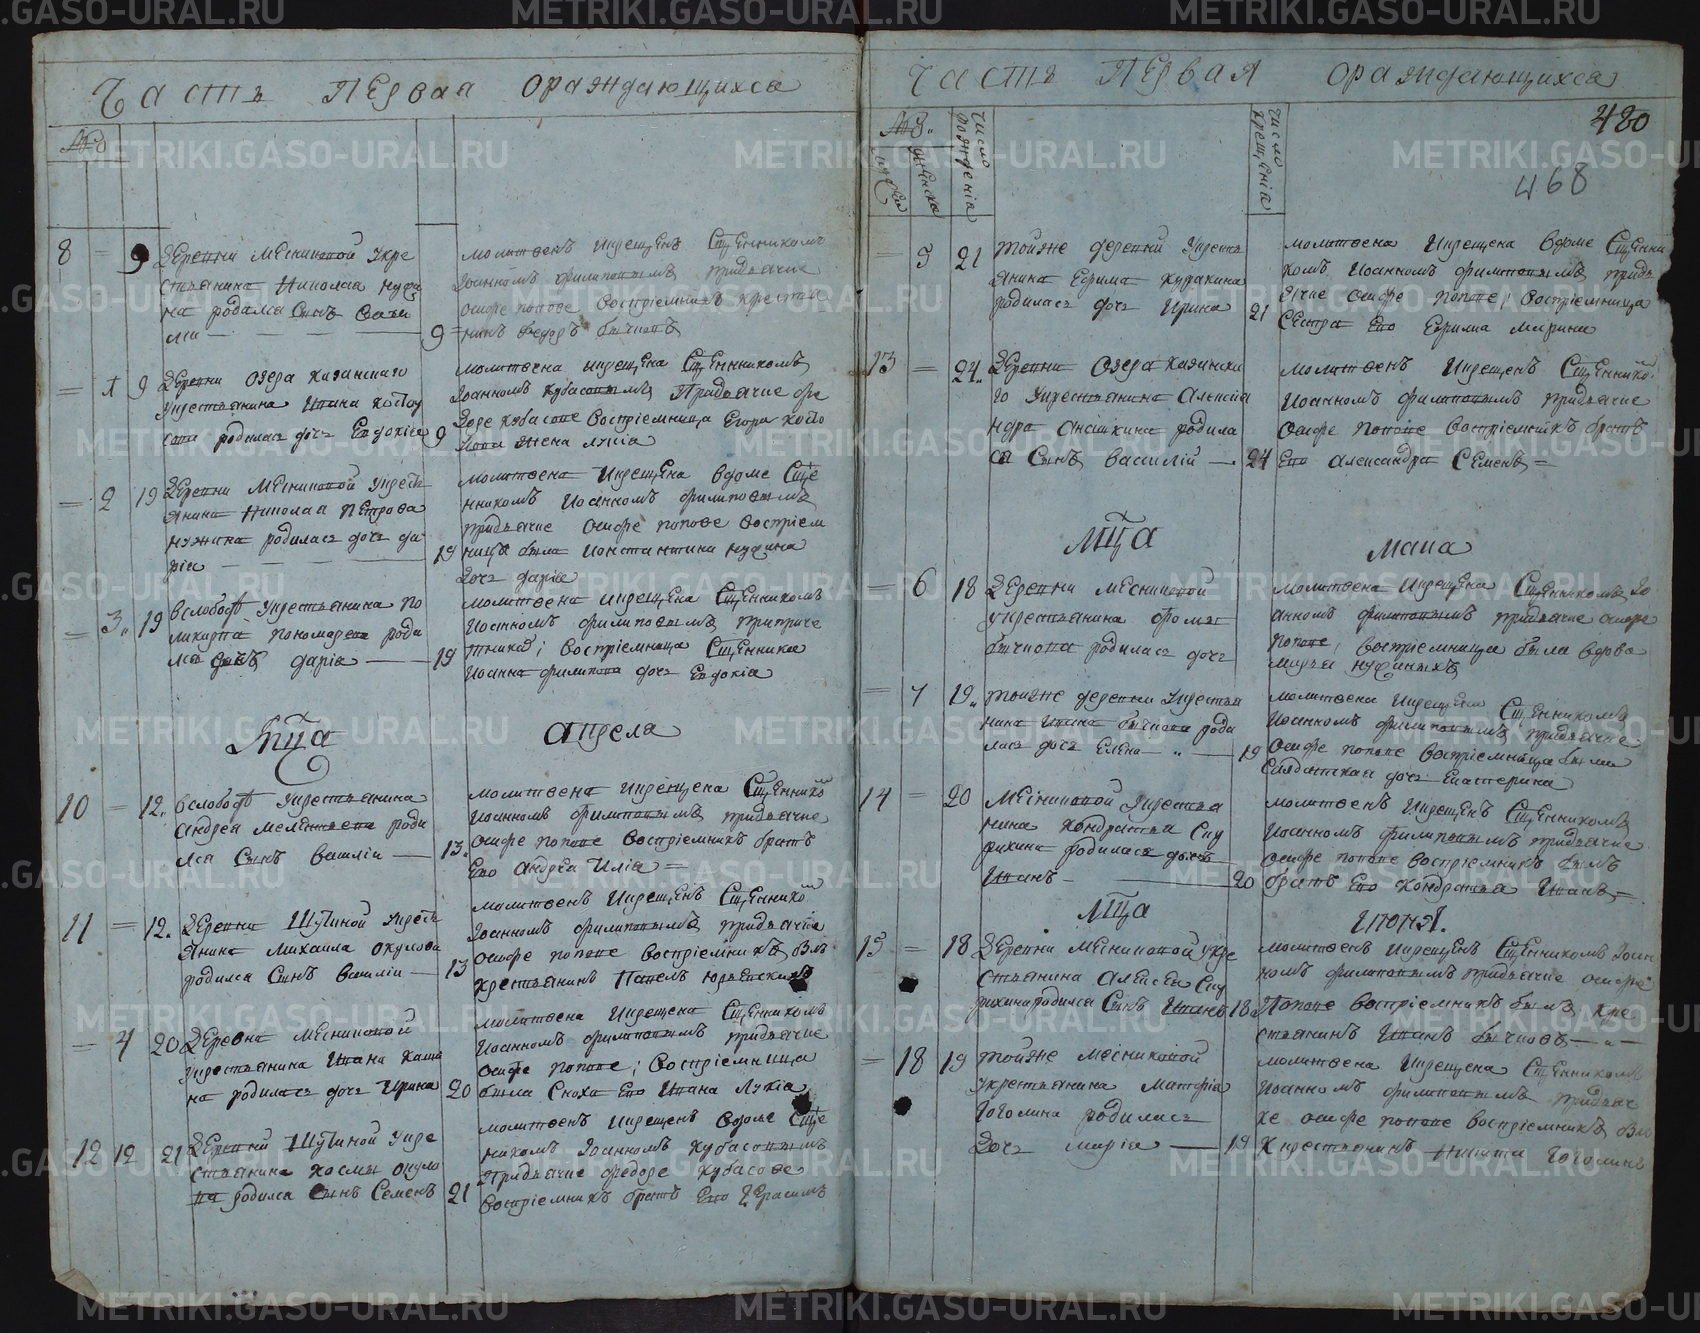 Часть первая о раждающихся
№
8 9 Деревни Месниковой у кре
стьянина Николая
на родился сынъ Васи
лiй 9
молитвенъ и крещенъ священникомъ
Iоанномъ Филиповымъ при дьячке
Осифе Попове восприемникъ крестья
нинъ Федоръ Бычковъ
1 9 Деревни Озера Казанскаго
у крестьянина Ивана
родилась дочь Евдокiя 9
молитвена и крещена священникомъ
Iоанномъ Кубасовымъ при дьячке Фе
доре Кубасове восприемница Егора
жена Лукiа
2 19 Деревни Месниковой у кресть
янина Николая Петрова
родилась дочь Да
рiа 19
молитвена и крещена в доме свяще
нникомъ Иоанномъ Филиповымъ
при дьячке Осифе Попове восприем
ница была Константина
дочь Дарiа
3 19 в слободе у крестьянина По
ликарпа Пономарева роди
ла дочь Дарiа 19
молитвена и крещена священникомъ
Иоанномъ Филиповымъ при приче
тнике; восприемница священника
Иоанна Филипова дочь Евдокiа
Мца Апреля
10 12 в слободе у крестьянина
Андреа роди
лса сынъ Василiй 13
молитвена и крещена священнико
Иоанномъ Филиповымъ при дьячке
Осифе Попове восприемникъ братъ
Ево Андреа Илiа
11 12 Деревни Шутиной у кресть
янина Михаила Окулова
родилса сынъ Василiй 13
молитвенъ и крещенъ священнико
Iоанномъ Филиповымъ при дьячке
Осифе Попове восприемникъ
крестьянинъ Павелъ
4 20 Деревни Месниковой
у крестьянина Ивана Каши
на родилась дочь Ирина 20
молитвена и крещена священникомъ
Иоанномъ Филиповымъ при дьячке
Осифе Попове; восприемница
была сноха Ево Ивана Лукiа
12 12 21 Деревни Шутиной у кре
стьянина Космы Окуло
ва родилса сынъ Семенъ 21
молитвенъ и крещенъ в доме свяще
никомъ Iоанномъ Кубасовымъ
при дьячке Федоре Кубасове
восприемникъ братъ Ево Герасимъ
Часть первая о раждающихса
480
468
№
мужска женска число рожденiа число крещенiа
21 той же деревни у кресть
янина Ефима Куракина
родилась дочь Ирина 21
молитвена и крещена в доме священни
комъ Иоанномъ Филиповымъ при дь
ячке Осифе Попове; восприемница
сестра Ево Ефима Марина
13 24 Деревни Озера Казанска
го у крестьянина Алекса
ндра Аникина родила
са сынъ Василiй 24
молитвенъ и крещенъ священнико
Иоанномъ Филиповымъ при дьячке
Осифе Попове восприемникъ братъ
Ево Александра Семенъ
Мца Маиа
6 18 Деревни Месниковой
у крестьянина Фомы
Бычкова родилась дочь
молитвена и крещена священникомъ Iо
анномъ Филиповымъ при дьячке Осифе
Попове; восприемница была вдова
7 19 той же деревни у крестья
нина Ивана Бычкова роди
лась дочь Елена 19
молитвена и крещена священникомъ
Иоанномъ Филиповымъ при дьячке
Осифе Попове восприемница была
салдатская дочь Екатерина
14 20 Месниковой у крестья
нина Кондратьа Спу
рихина родилась
Иванъ 20
молитвенъ и крещенъ священникомъ
Иоанномъ Филиповымъ при дьячке
Осифе Попове восприемникъ былъ
братъ Ево Кондратьа Иванъ
Мца Июня.
15 18 Деревни Месниковой у кре
стьянина Алексеа Спу
рихина родилса сынъ Иванъ 18
молитвенъ и крещенъ священникомъ Iоан
номъ Филиповымъ при дьячке Осифе
Попове восприемникъ былъ кре
стьянинъ Иванъ Бычковъ
18 19 той же Месниковой
у крестьянина Матфiа
Гоголина родилась
дочь Марiа 19
молитвена и крещена священникомъ
Иоанномъ Филиповымъ при дьяч
ке Осифе Попове восприемникъ
крестьянинъ Никита Гоголинъ
METRIKI.GASO-URAL.RU